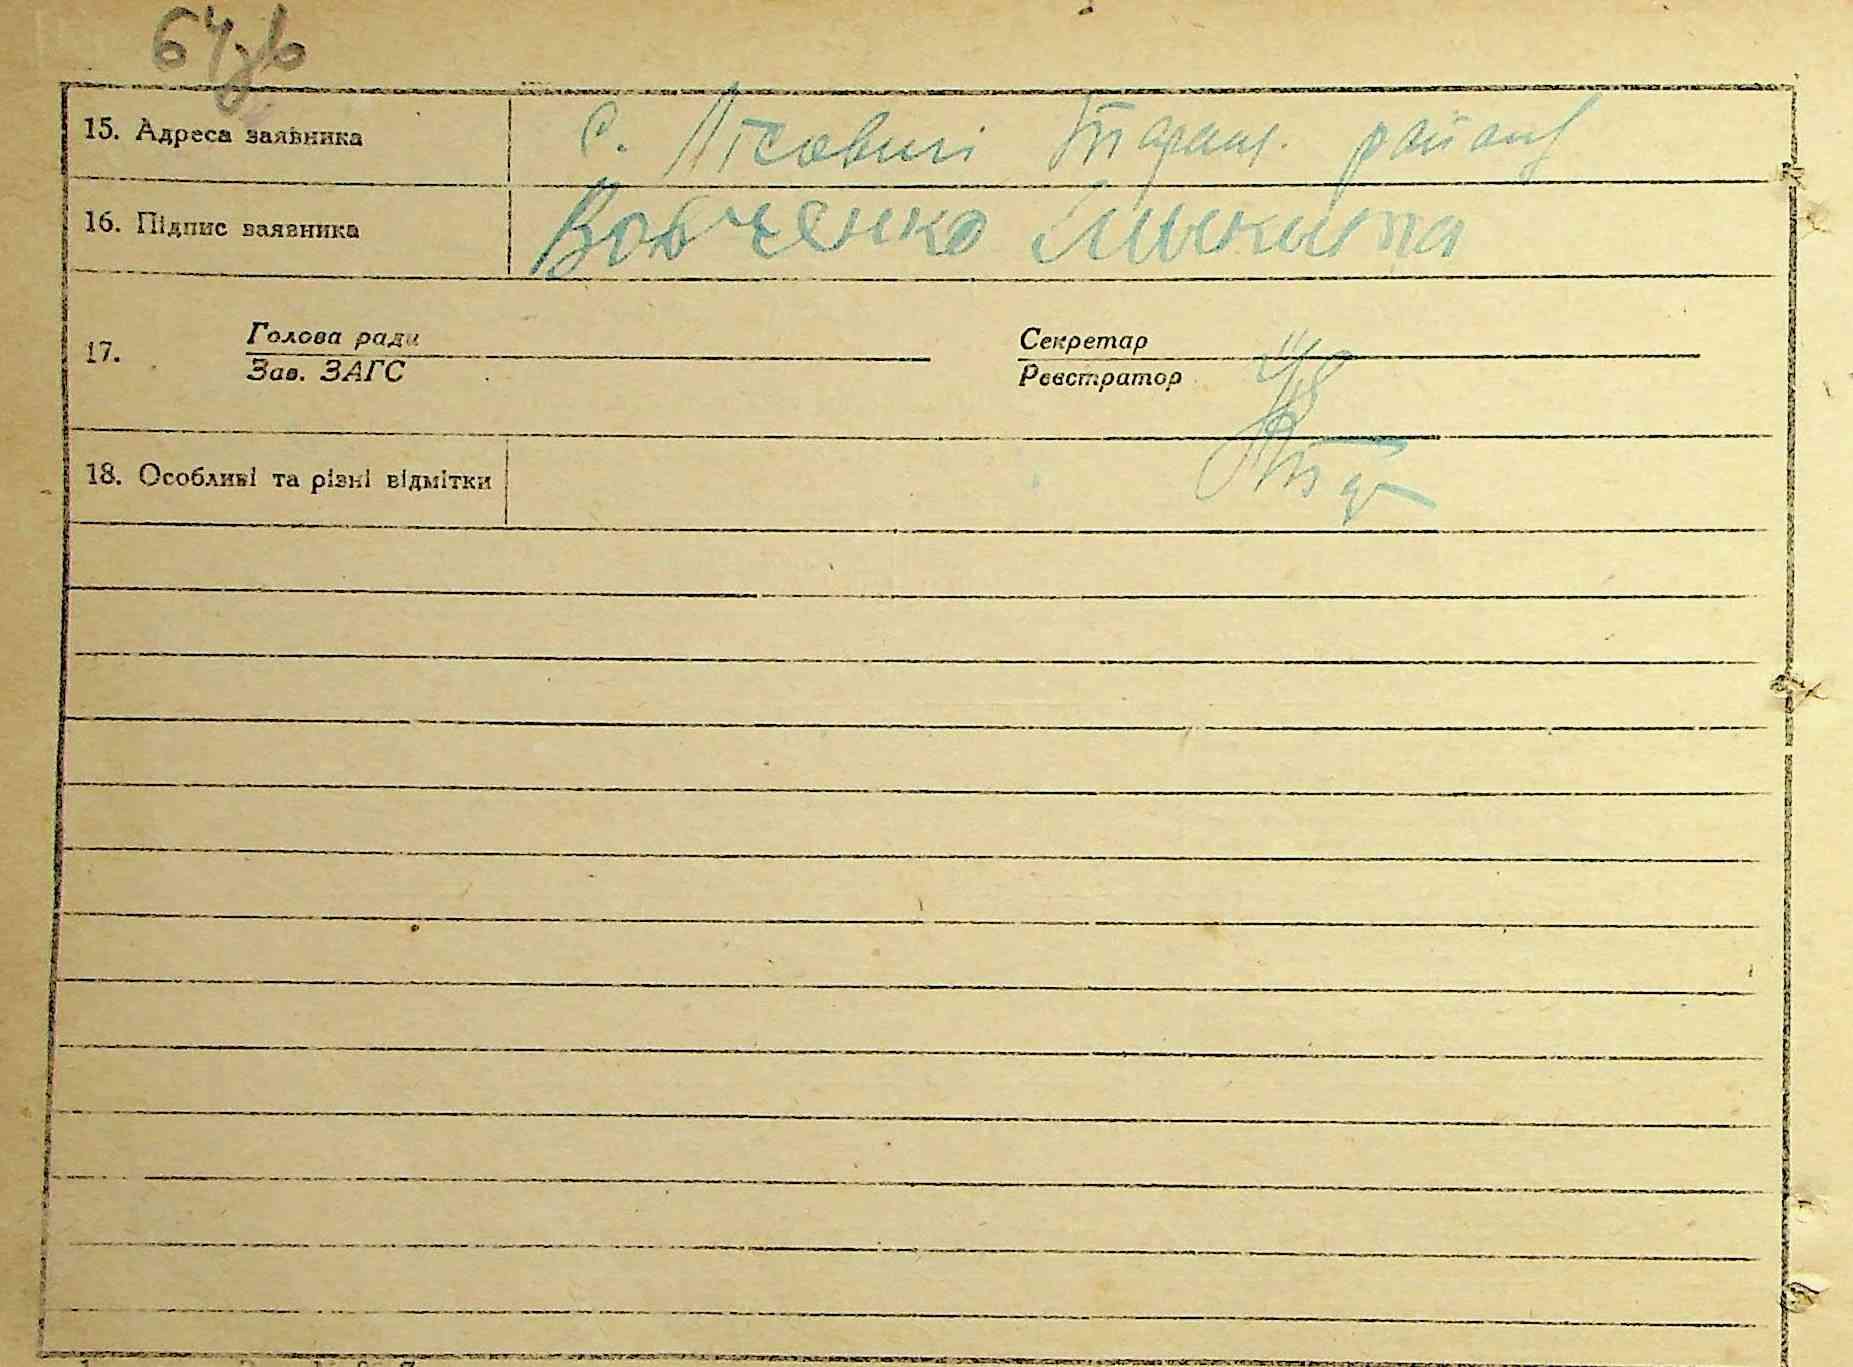 64зв
15. Адреса заявника с. Лісовичі Таращ. району
16. Підпис заявника Вовченко Микита
17. Голова ради Секретар
Зав. ЗАГС Реєстратор
18. Особливі та різні відмітки